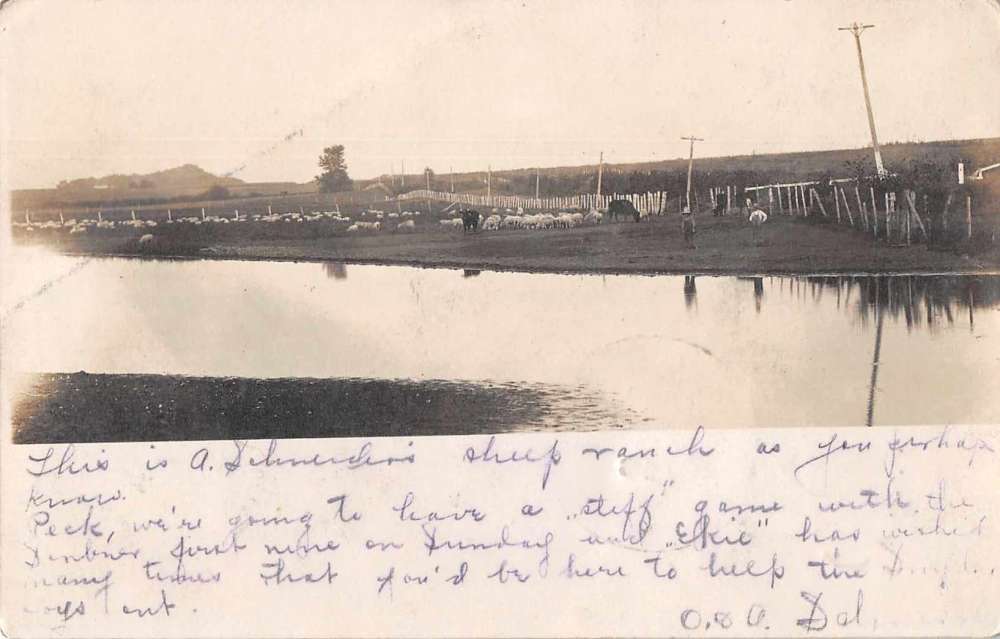 This is A. Schneiders sheep ranch as you perhap
know.
Peck, we're going to have a „stiff" game with the
first nine on Sunday and „Ekie" has wished
many times that you'd be here to help the
boys out.
O. & A.